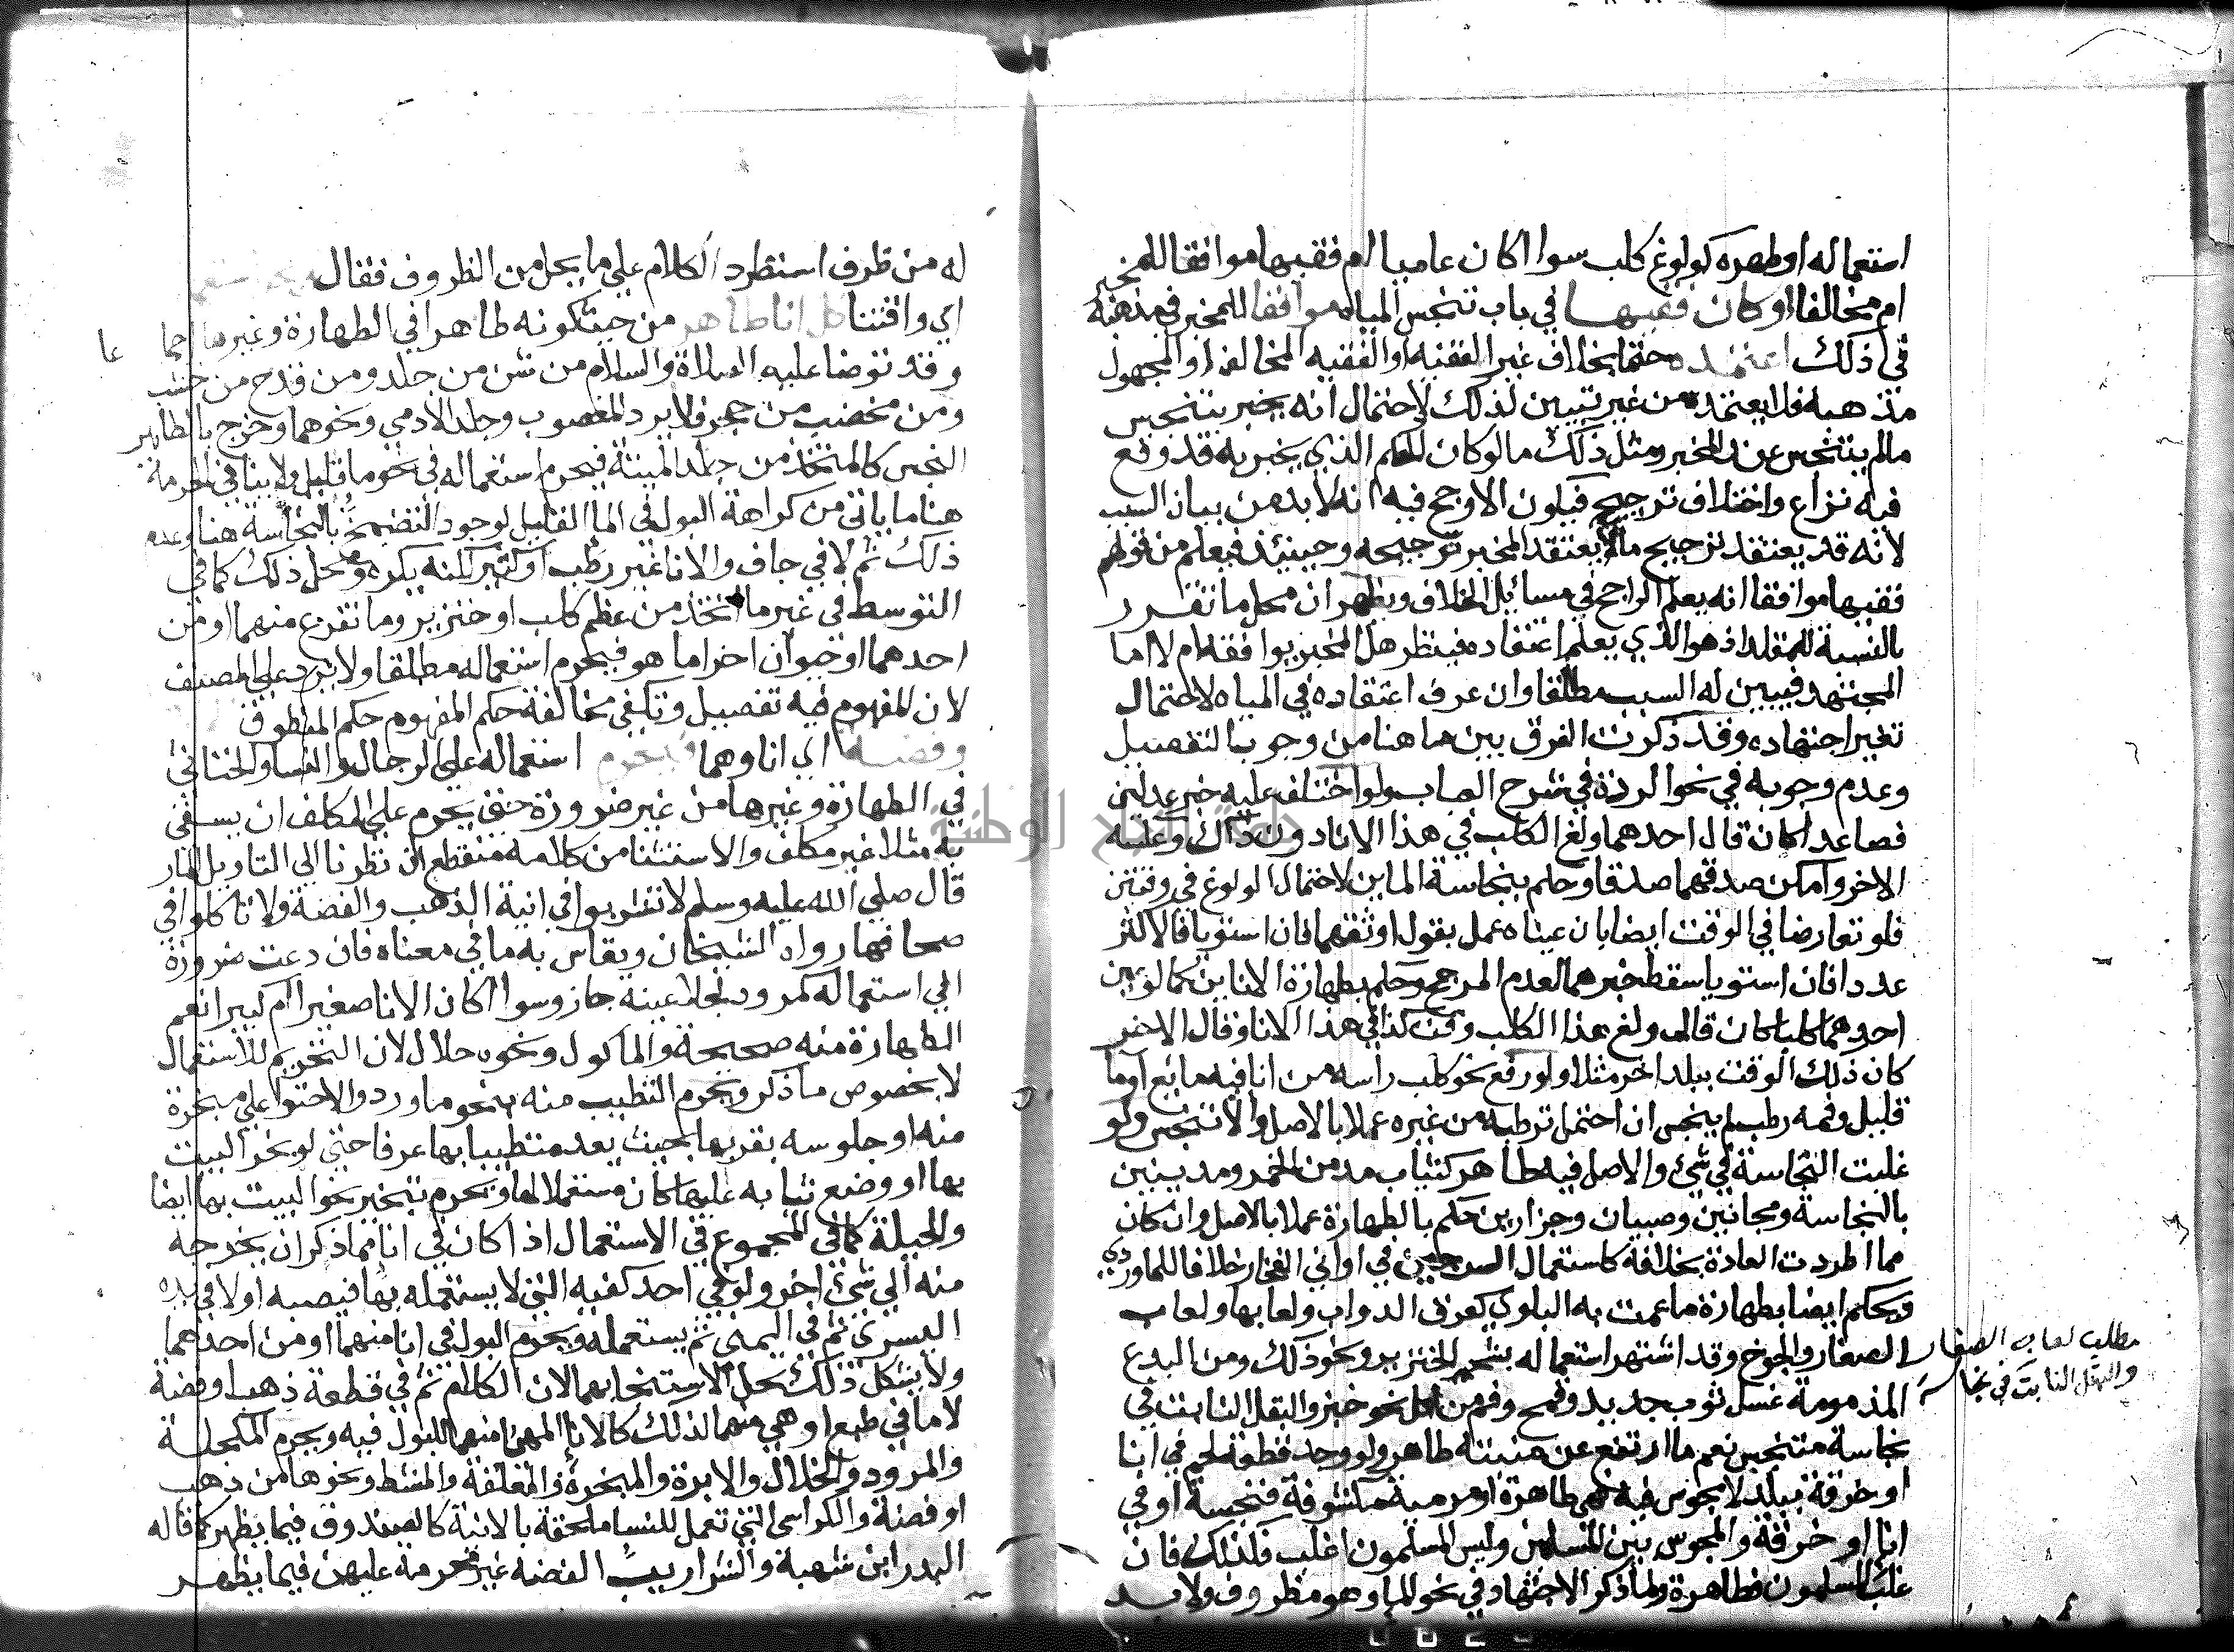 استعماله او طهره كولوغ كلب سوا اكان عاميا ام فقيها موافقا للمخبر
ام مخالفا او كان فقيها في باب تنجس المياه موافقا للمخبر في مذهبه
في ذلك اعتمده حتما بخلاف غير الفقيه او الفقيه المخالف او المجهول
مذهبه فلا يعتمده من غير تبيين لذلك لاحتمال انه يخبر بتنجيس
مالم ينتجس عند المخبر ومثل ذلك ما لو كان الحكم الذي يخبر به قد وقع
فيه نزاع واختلاف ترجيح فيكون الاوجح فيه انه لا بد من بيان السبب
لانه قد يعتقد ترجيح مالا يعتقد المخبر ترجيحه وحينئذ فيعلم من قولهم
فقيها موافقا انه يعلم الراجح في مسائل الخلاف ويظهر ان محل ما تقرر
بالنسبة للمقلد اذ هو الذي يعلم اعتقاده فينظر هل المخبر يوافقه ام لا اما
المجتهد فيبين له السبب مطلقا وان عرف اعتقاده في المياه لاحتمال
تغير اجتهاده وقد ذكرت الفرق بين ما هنا من وجوب التفصيل
وعدم وجوبه في نحو الردة في شرح العباب ولو اختلف عليه خبر عدلين
فصاعدا كان قال احدهما ولغ الكلب في هذا الانا دون ذاك وعكسه
الاخر وامكن صدقهما صدقا وحكم بنجاسة الماين لاحتمال الولوغ في وقتين
فلو تعارضا في الوقت ايضا بان عيناه عمل بقول اوثقهما فان استويا فالاكثر
عددا فان استويا سقط خبرهما لعدم المرجح وحكم بطهارة الاناين كما لو عين
احدهما كلبا كان قال ولغ هذا الكلب وقت كذا في هذا الانا وقال الاخر
كان ذلك الوقت ببلد اخر مثلا ولو رفع نحو كلب راسه من انا فيه مائع او ما
قليل وفمه رطب لم ينجس ان احتمل ترطبه من غيره عملا بالاصل والا تنجس ولو
غلبت النجاسة في شئ والاصل فيه طاهر كثياب مدمن الخمر ومدينين
بالنجاسة ومجانين وصبيان وجزارين حكم بالطهارة عملا بالاصل وان كان
مما اطردت العادة بخلافه كاستعمال السرجين في اواني الفخار خلافا للماوردي
ويحكم ايضا بطهارة ما عمت به البلوي كعرق الدواب ولعابها ولعاب
الصغار والجوخ وقد اشتهر استعماله بشحم الخنزير ونحو ذلك ومن البدع
المذمومة غسل ثوب جديد وقمح وفم من اكل نحو خبز والبقل النابت في
نجاسة متنجس نعم ما ارتفع عن منبته طاهر ولو وجد قطعة لحم في انا
او خرقة ببلد لا مجوس فيه فهي طاهرة او مرمية مكشوفة فنجسة او في
انا او خرقة والمجوس بين المسلمين وليس المسلمون اغلب فكذلك فان
غلب المسلمون فطاهرة ولما ذكر الاجتهاد في نحو الما وهو مظروف ولا بد
مطلب لعاب الصغار
والبقل النابت في نجاسة
له من ظرف استطرد الكلام علي ما يحل من الظروف فقال
اي واقتنا كل انا طاهر من حيث كونه طاهرا في الطهارة وغيرها
وقد توضا عليه الصلاة والسلام من شن من جلد ومن قدح من خشب
ومن مخضب من حجر فلا يرد المغصوب وجلد الادمي ونحوهما وخرج بالطاهر
النجس كالمتخذ من جلد الميتة فيحرم استعماله في نحو ما قليل ولا ينافي الحرمة
هنا ما ياتي من كراهة البول في الما القليل لوجود التضمخ بالنجاسة هنا وعدم
ذلك ثم لا في جاف والانا غير رطب او كثير لكنه يكره ومحل ذلك كما في
التوسط في غير ما اتخذ من عظم كلب او خنزير وما تفرع منهما او من
احدهما او حيوان اخر اما هو فيحرم استعماله مطلقا ولا يرد علي المصنف
لان المفهوم فيه تفصيل وتكفي مخالفة حكم المفهوم حكم المنطوق
وفضة اي اناوهما فيحرم استعماله علي الرجال والنسا والخناثي
في الطهارة وغيرها من غير ضرورة حتي يحرم علي المكلف ان يسقي
به مثلا غير مكلف والاستثنا من كلامه منقطع ان نظرنا الي التاويل المار
قال صلي الله عليه وسلم لا تشربوا في انية الذهب والفضة ولا تاكلوا في
صحافهما رواه الشيخان ويقاس به ما في معناه فان دعت ضرورة
الي استعماله كمرود لجلا عينه جاز وسوا اكان الانا صغيرا ام كبيرا نعم
الطهارة منه صحيحة والماكول ونحوه حلال لان التحريم للاستعمال
لا بخصوص ما ذكر ويحرم التطيب منه بنحو ما ورد والاحتوا علي مبخرة
منه او جلوسه بقربها بحيث يعد متطيبا بها عرفا حتي لو بخر البيت
بها او وضع ثيابه عليها كان مستعملا لها ويحرم تبخير نحو البيت بها ايضا
والحيلة كما في المجموع في الاستعمال اذا كان في انا مما ذكر ان يخرجه
منه الي شئ اخر ولو في احد كفيه التي لا يستعمله بها فيصبه اولا في يده
اليسري ثم في اليمني ثم يستعمله ويحرم البول في انا منهما او من احدهما
ولا يشكل ذلك بحل الاستنجا بهما لان الكلام ثم في قطعة ذهب او فضة
لا ما في طبع او هيي منهما لذلك كالانا المهيا منهما للبول فيه ويحرم المكحلة
والمرود والخلال والابرة والمبخرة والمعلقة والمشط ونحوها من ذهب
او فضة والكراسي التي تعمل للنسا ملحقة بالانية كالصندوق فيما يظهر كما قاله
البدر ابن شهبة والشراريب الفضة غير محرمة عليهن فيما يظهر